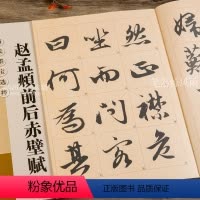 赵孟頫前后赤壁赋
婦蘇
然正襟危
坐而問客
曰何為其
粉象优品